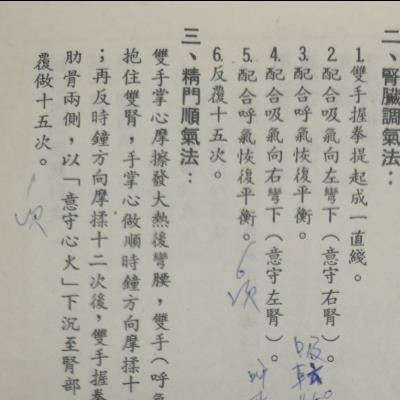 二、腎臟調氣法：
1.雙手握拳提起成一直綫。
2.配合吸氣向左彎下（意守右腎）。
3.配合呼氣恢復平衡。
吸
4.配合吸氣向右彎下（意守左腎）。
5.配合呼氣恢復平衡。
6次
6.反覆十五次。
三、精門順氣法：
雙手掌心摩擦發大熱後彎腰，雙手（呼氣
抱住雙腎，手掌心做順時鐘方向摩揉十
；再反時鐘方向摩揉十二次後，雙手握拳
肋骨兩側，以「意守心火」下沉至腎部
覆做十五次。
6次